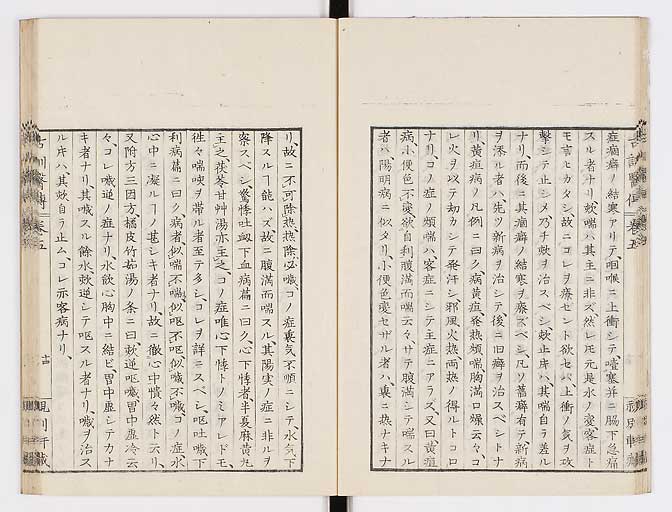 症痼癖ノ結寒アリテ、咽喉ニ上衝シテ、噎塞并ニ脇下急痛
スル者ナリ、欬喘ハ其主ニ非ズ、然レ𪜈元是水ノ変客症ト
モ言ヒカタシ、故ニコレヲ療セント欲セバ上衝ノ気ヲ攻
撃シテ止シメ乃チ欬ヲ治スベシ、欬止片ハ其喘自ラ差ル
ナリ、而後ニ其痼癖ノ結寒ヲ療スベシ、凡ソ舊癖有テ新病
ヲ添ル者ハ、先ツ新病ヲ治シテ後ニ旧癖ヲ治スベシトナ
リ、黄疸病ノ凡例ニ曰ク病黄疸、発熱煩喘胸満口燥云々、コ
レ火ヲ以テ劫カシテ発汗シ、邪風火熱両熱ノ得ルトコロ
ナリ、コノ症ノ煩喘ハ、客症ニシテ主症ニアラズ、又曰黄疸
病、小便色不変欲自利腹満而喘云々、サテ腹満シテ喘スル
者ハ、陽明病ニ似タリ、小便色変セザル者ハ、裏ニ熱ナキナ
リ、故ニ不可除熱、熱除必噦、コノ症裏気不順ニシテ、水気下
降スルヿ能ハズ、故ニ腹満而喘スル、其陽実ノ症ニ非ルヲ
察スベシ、驚悸吐衂下血病篇ニ曰ク、心下悸者、半夏麻黄丸
主之、茯苓甘艸湯亦主之、コノ症唯心下悸トノミアレドモ、
徃々喘咳ヲ帯ル者至テ多シ、コレヲ詳ニスベシ、嘔吐噦下
利病篇ニ曰ク病者、似喘不喘、似呕不呕、似噦不噦、コノ症、水
心中ニ凝ルヿノ甚シキ者ナリ、故ニ徹心中憒々然ト云リ、
又附方三因方橘皮竹茹湯ノ条ニ曰欬逆呕噦胃中虚冷云
々、コレ噦逆ノ症ナリ、水飲心胸中ニ結ビ、胃中虚シテカナ
キ者ナリ、其噦スル餘水、欬逆シテ呕スル者ナリ、噦ヲ治ス
ル片ハ其欬自ラ止ム、コレ亦客病ナリ、